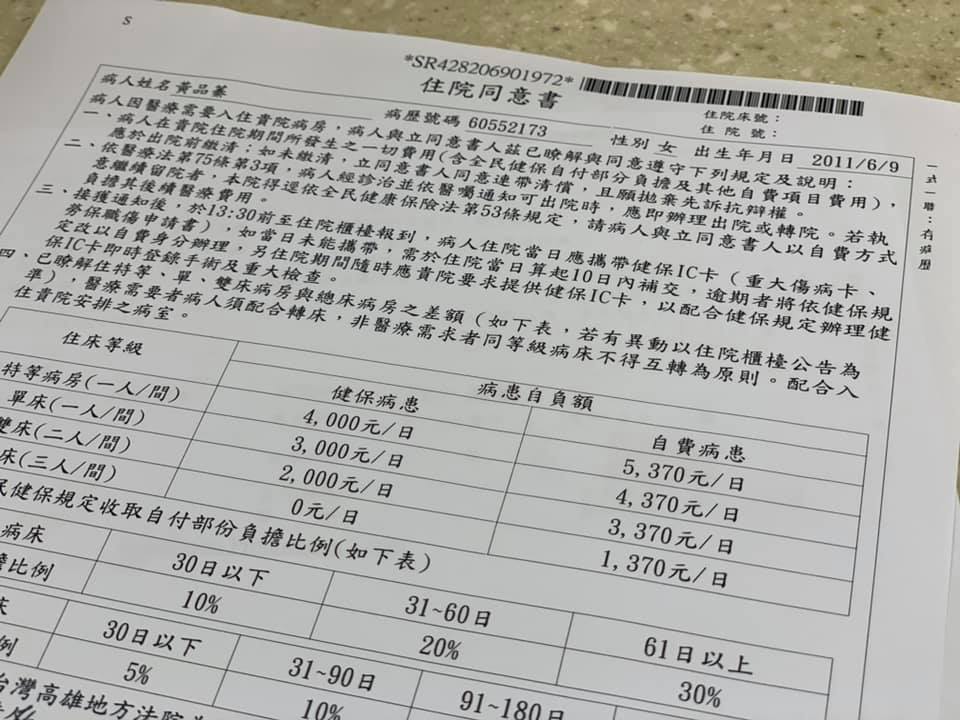 S
*SR428206901972*
住院同意書
住院床號：
住 院 號：
病人姓名黃品蓁
病歷號碼 60552173
性別 女 出生年月日 2011/6/9
病人因醫療需要入住貴院病房，病人與立同意書人茲已瞭解與同意遵守下列規定及說明：
一、病人在貴院住院期間所發生之一切費用(含全民健保自付部分負擔及其他自費項目費用)，
應於出院前繳清；如未繳清，立同意書人同意連帶清償，且願拋棄先訴抗辯權。
二、依醫療法第75條第3項，病人經診治並依醫囑通知可出院時，應即辦理出院或轉院。若執
意繼續留院者，本院得逕依全民健康保險法第53條規定，請病人與立同意書人以自費方式
負擔其後續醫療費用。
三、接獲通知後，於13:30前至住院櫃檯報到，病人住院當日應攜帶健保IC卡（重大傷病卡、
勞保職傷申請書），如當日未能攜帶，需於住院當日算起10日內補交，逾期者將依健保規
定改以自費身分辦理，另住院期間隨時應貴院要求提供健保IC卡，以配合健保規定辦理健
保IC卡即時登錄手術及重大檢查。
四、已瞭解住特等、單、雙床病房與總床病房之差額（如下表，若有異動以住院櫃檯公告為
準），醫療需要者病人須配合轉床，非醫療需求者同等級病床不得互轉為原則。配合入
住貴院安排之病室。
一式一聯：存病歷
住床等級
病患自負額
健保病患
自費病患
特等病房(一人/間)
4,000元/日
5,370元/日
單床(一人/間)
3,000元/日
4,370元/日
雙床(二人/間)
2,000元/日
3,370元/日
床(三人/間)
0元/日
1,370元/日
民健保規定收取自付部份負擔比例(如下表)
病床
30日以下
31~60日
61日以上
擔比例
10%
20%
30%
床
30日以下
31~90日
91~180日
例
5%
10%
台灣高雄地方法院為